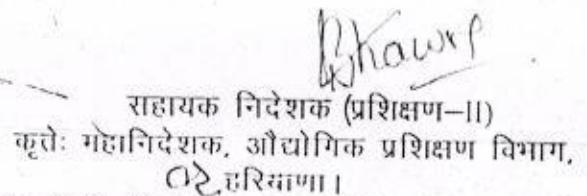 सहायक निदेशक (प्रशिक्षण–II)
कृतेः महानिदेशक, औद्योगिक प्रशिक्षण विभाग,
हरियाणा।